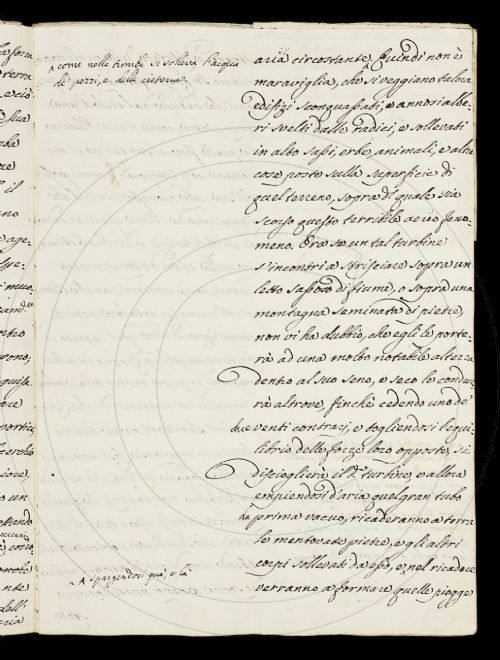 ^ come nelle trombe si solleva l'acqua
de' pozzi, e delle cisterne
aria circostante. ^ Quindi non è
maraviglia, che si veggiano talora
edifizj sconquassati, e annosi albe-
ri svelti dalle radici, e sollevati
in alto sassi, erbe, animali, e altre
coze poste sulla superficie di
quel terreno, sopra di quale sia
scorso questo terribile aereo feno-
meno. Ora se un tal turbine
s'incontri a strisciare sopra un
letto sassoso di fiume, o sopra una
montagna seminata di pietre,
non vi ha dubbio, che egli le porte-
rà ad una molto notabile altezza
dentro al suo seno, e seco le condur-
rà altrove, finchè cedendo uno de'
due venti contrarj, e togliendosi l'equi-
librio delle forze loro opposte, si
discioglierà il turbine, e allora
empiendosi d'aria quel gran tubo
prima vacuo, ricaderanno a terra
le mentovate pietre, e gli altri
corpi sollevati da esso, e ^ nel ricadere
verranno a formare quelle piogge
^ spargendosi quà, e là